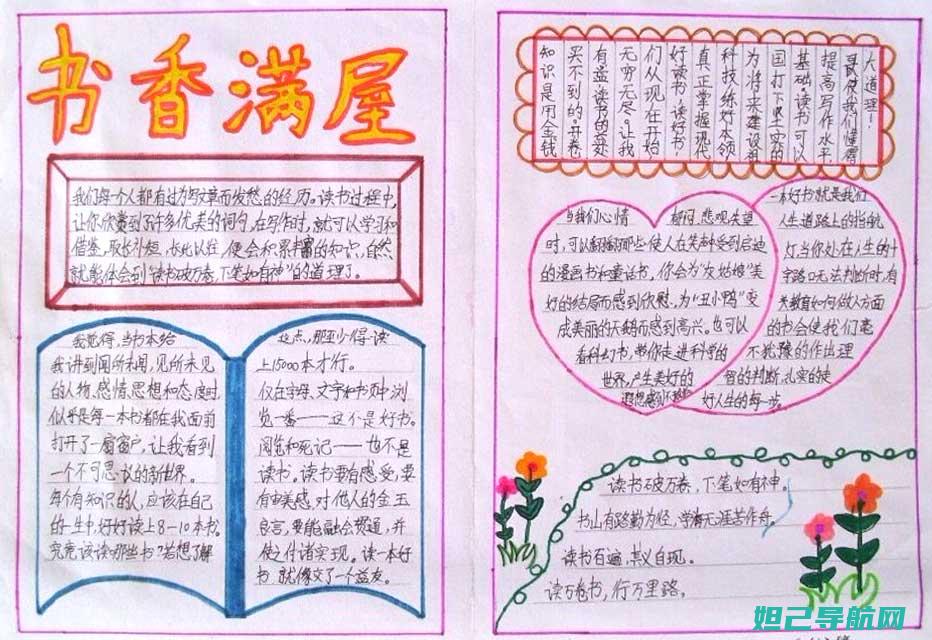 书香满屋
我们每一个人都有过为写文章而发愁的经历。读书过程中,
让你欣赏到了许多优美的词句,在写作时,就可以学习和
借鉴,取长补短,长此以往,便会积累丰富的知识,自然
就能体会到“读书破万卷,下笔如有神”的道理了。
我觉得,当书本给
我讲到闻所未闻,见所未见
的人物、感情、思想和态度时,
似乎是每一本书都在我面前
打开了一扇窗户,让我看到
一个不可思议的新世界。
每个有知识的人,应该在自己
的一生中,好好读上8-10本书。
究竟该读哪些书?若想了解
这点,那至少得读
上15000本才行。
仅在字母、文字和书页中浏
览一番——这不是好书。
阅览和死记——也不是
读书。读书要有感受,要
有审美感,对他人的金玉
良言,要能融会贯通,并
使之付诸实现。读一本好
书,就像交了一个益友。
知识是用金钱
买不到的。开卷
有益,读书的获
无穷无尽。让我
们从现在开始
好读书,读好书!
真正掌握现代
科技,练好本领
为将来建设祖
国打下坚实的
基础。读书可以
提高写作水平
使我们懂得
大道理!
当我们心情 悲观失望
时,可以翻翻那些使人在笑声中受到启迪
的漫画书和童话书。你会为“灰姑娘”美
好的结局而感到欣慰,为“丑小鸭”变
成美丽的天鹅而感到高兴。也可以
看科幻书,带你走进科学的
世界,产生美好的
遐想,感到不
一本好书就是我们
人生道路上的指航
灯。当你处在人生的十
字路口无法判断时,有
关教育如何做人方面
的书会使我们毫
不犹豫的作出理
智的判断,扎实的走
好人生的每一步。
读书破万卷,下笔如有神。
书山有路勤为径,学海无涯苦作舟。
读书百遍,其义自现。
读万卷书,行万里路。
妲己导航网